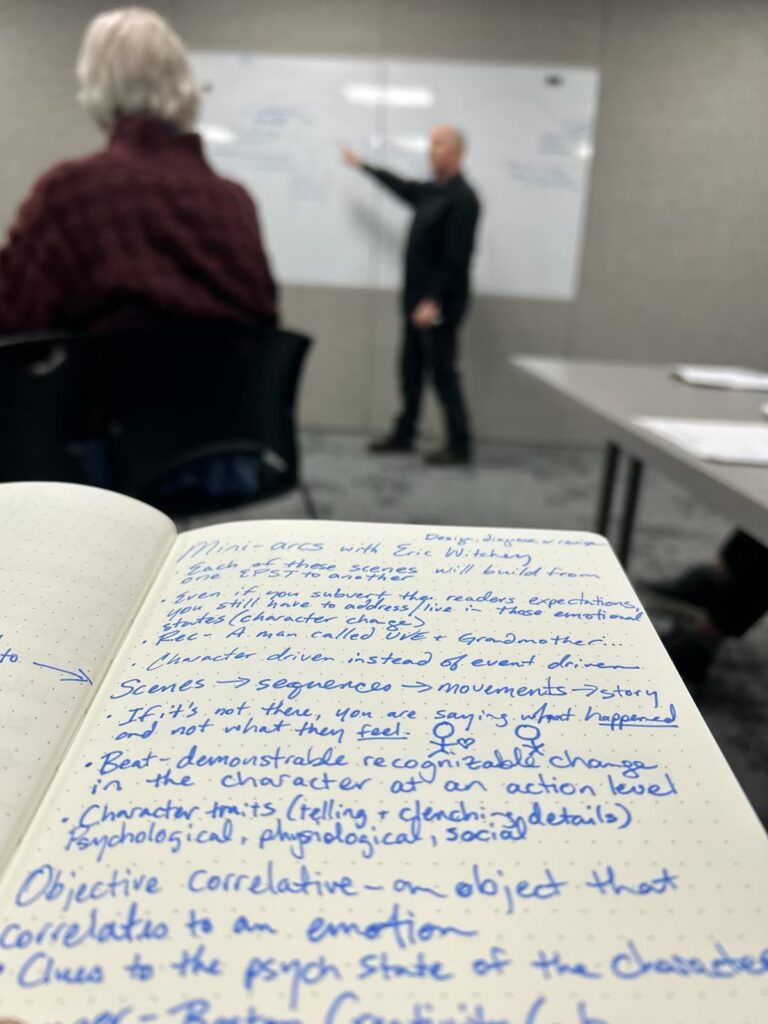 Design, diagnose or revise
Mini-arcs with Eric Witchey
· Each of these scenes will build from
one EPST to another
· Even if you subvert the readers expectations,
you still have to address/live in those emotional
states (character change)
· Rec- A man called UVE + Grandmother...
· Character driven instead of event driven
to
Scenes → sequences → movements → story
· If it's not there, you are saying what happened
and not what they feel.
· Beat- demonstrable recognizable change
in the character at an action level
· Character traits (telling + clenching details)
Psychological, physiological, social
Objective correlative - an object that
correlates to an emotion
· Clues to the psych state of the character
- Boston Creativity